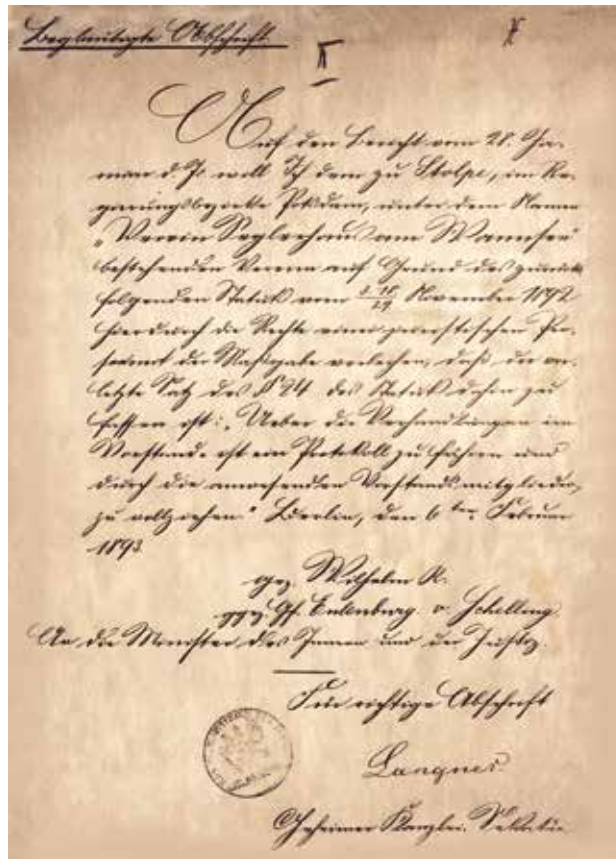 Beglaubigte Abschrift.
II
Auf den Bericht vom 28. Ja-
nuar d. Js. will Ich dem zu Stolpe, im Re-
gierungsbezirke Potsdam, unter dem Namen
„Verein Seglerhaus am Wannsee“
bestehenden Verein auf Grund des zurück
folgenden Statuts vom November 1892
hierdurch die Rechte einer juristischen Per-
son mit der Maßgabe verleihen, daß der vor-
letzte Satz des § 24 des Statuts dahin zu
fassen ist: „Ueber die Verhandlungen im
Vorstande ist ein Protokoll zu führen und
durch die anwesenden Vorstandsmitglieder
zu vollziehen.“ Berlin, den 6ten Februar
1893.
gez. Wilhelm R.
ggez. Gf. Eulenburg. v. Schelling.
An die Minister des Innern und der Justiz.
Für richtige Abschrift
Langner
Geheimer Kanzlei-Sekretär